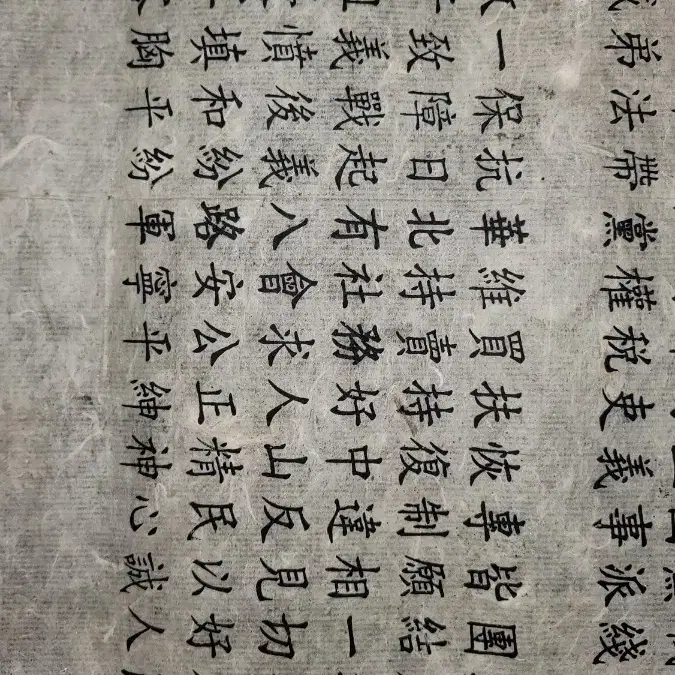 綫
派
事
義
吏
稅
權
黨
帶
法
弟
團結一切好人
皆願相見以誠
專制違反民心
恢復中山精神
扶持好人正紳
買賣務求公平
維持社會安寧
華北有八路軍
抗日起義紛紛
保障戰後和平
一致義憤填胸